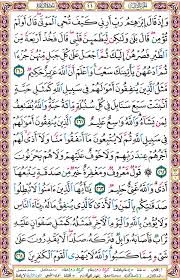 وَإِذْ قَالَ إِبْرَٰهِـۧمُ رَبِّ أَرِنِى كَيْفَ تُحْىِ ٱلْمَوْتَىٰ قَالَ أَوَلَمْ
تُؤْمِن قَالَ بَلَىٰ وَلَٰكِن لِّيَطْمَئِنَّ قَلْبِى قَالَ فَخُذْ أَرْبَعَةً مِّنَ
ٱلطَّيْرِ فَصُرْهُنَّ إِلَيْكَ ثُمَّ ٱجْعَلْ عَلَىٰ كُلِّ جَبَلٍ مِّنْهُنَّ جُزْءًا
ثُمَّ ٱدْعُهُنَّ يَأْتِينَكَ سَعْيًا وَٱعْلَمْ أَنَّ ٱللَّهَ عَزِيزٌ حَكِيمٌ
مَّثَلُ ٱلَّذِينَ يُنفِقُونَ أَمْوَٰلَهُمْ فِى سَبِيلِ ٱللَّهِ كَمَثَلِ حَبَّةٍ
أَنۢبَتَتْ سَبْعَ سَنَابِلَ فِى كُلِّ سُنۢبُلَةٍ مِّا۟ئَةُ حَبَّةٍ وَٱللَّهُ يُضَٰعِفُ
لِمَن يَشَآءُ وَٱللَّهُ وَٰسِعٌ عَلِيمٌ ٱلَّذِينَ يُنفِقُونَ أَمْوَٰلَهُمْ
فِى سَبِيلِ ٱللَّهِ ثُمَّ لَا يُتْبِعُونَ مَآ أَنفَقُوا۟ مَنًّا وَلَآ أَذًى لَّهُمْ
أَجْرُهُمْ عِندَ رَبِّهِمْ وَلَا خَوْفٌ عَلَيْهِمْ وَلَا هُمْ يَحْزَنُونَ
قَوْلٌ مَّعْرُوفٌ وَمَغْفِرَةٌ خَيْرٌ مِّن صَدَقَةٍ يَتْبَعُهَآ أَذًى
وَٱللَّهُ غَنِىٌّ حَلِيمٌ يَٰٓأَيُّهَا ٱلَّذِينَ ءَامَنُوا۟ لَا تُبْطِلُوا۟
صَدَقَٰتِكُم بِٱلْمَنِّ وَٱلْأَذَىٰ كَٱلَّذِى يُنفِقُ مَالَهُۥ رِئَآءَ ٱلنَّاسِ
وَلَا يُؤْمِنُ بِٱللَّهِ وَٱلْيَوْمِ ٱلْءَاخِرِ فَمَثَلُهُۥ كَمَثَلِ صَفْوَانٍ عَلَيْهِ
تُرَابٌ فَأَصَابَهُۥ وَابِلٌ فَتَرَكَهُۥ صَلْدًا لَّا يَقْدِرُونَ عَلَىٰ
شَىْءٍ مِّمَّا كَسَبُوا۟ وَٱللَّهُ لَا يَهْدِى ٱلْقَوْمَ ٱلْكَٰفِرِينَ